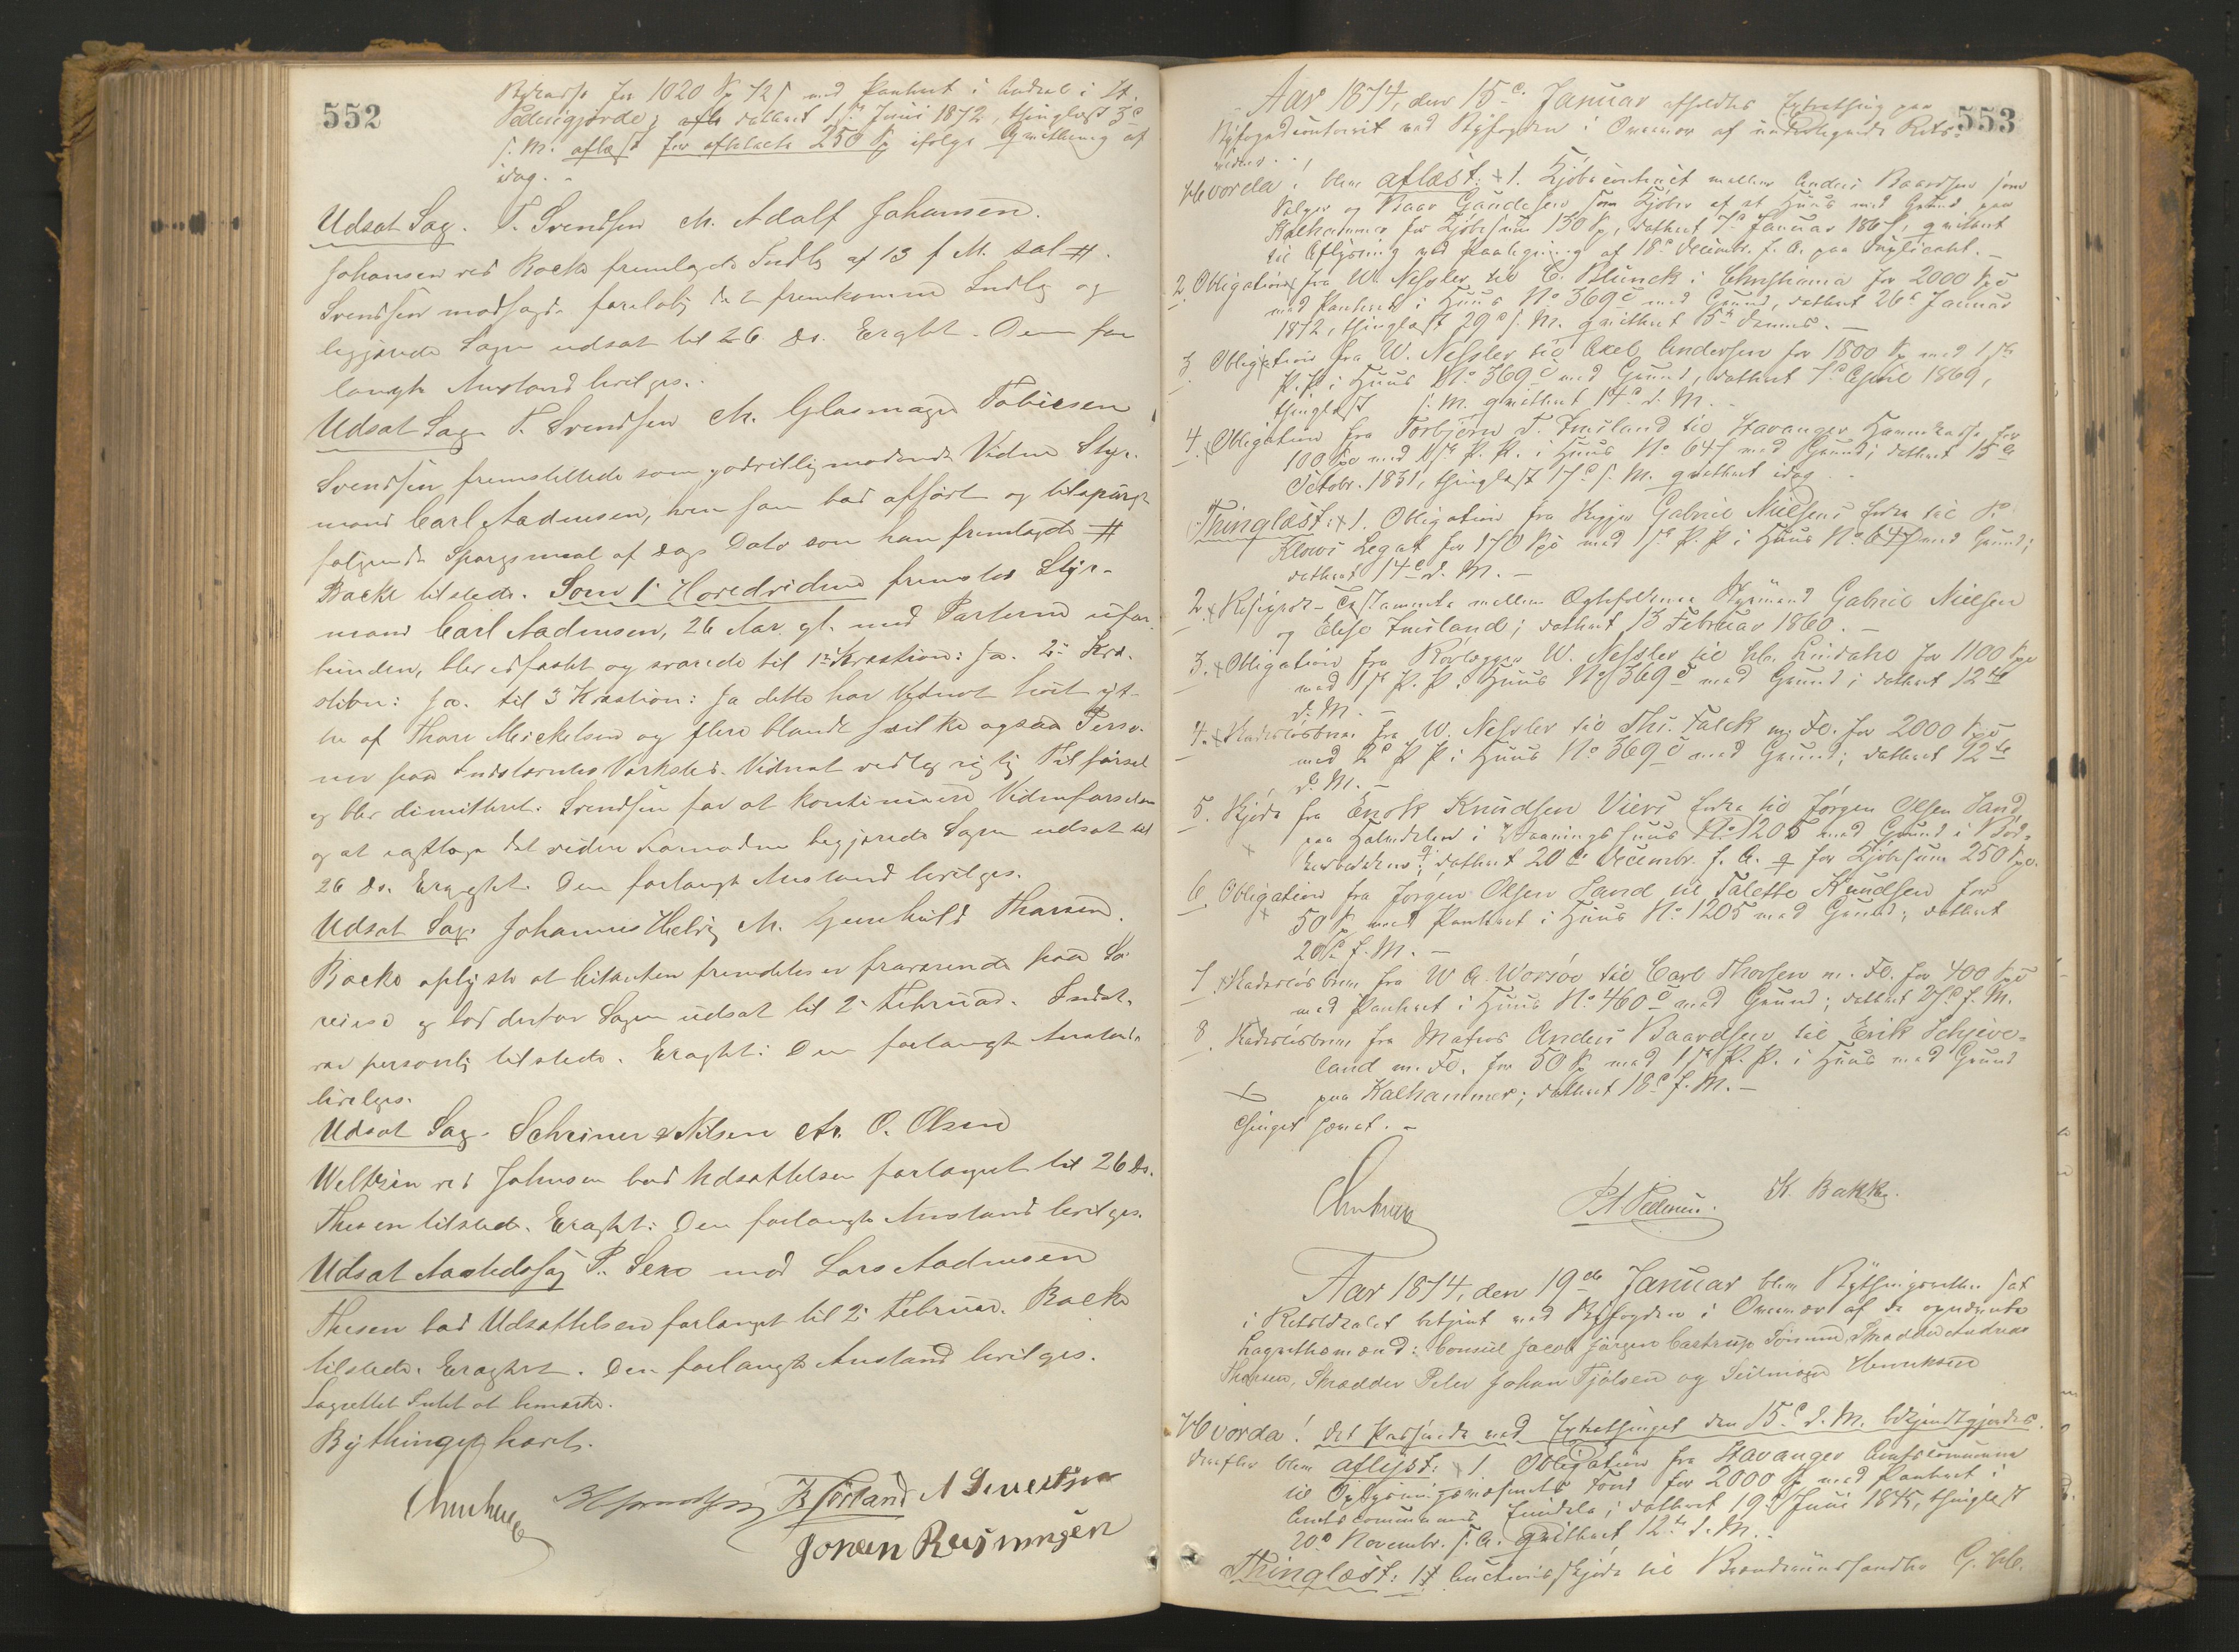 552
for 1020 Sp 72 s med Panteret i Andeel i St.
Pedersgjerde; dateret 1ste Juni 1872, thinglæst 3de
s. M. aflæst for afbetalte 250 Sp ifølge Qvittering af
idag. -
Udsat Sag. T. Svendsen ctr. Adolf Johansen.
Johansen ved Backe fremlagde Indlæg af 13 f M. sal #.
Svendsen modsagde foreløbig det fremkomne Indlæg og
begjærede Sagen udsat til 26 ds. Eragtet. Den for
langte Anstand bevilges.
Udsat Sag. T. Svendsen ctr. Glasmager Tobiesen
Svendsen fremstillede som godvillig mødende Vidne Styr-
mand Carl Aadnesen, hvem han bad afhørt og tilspurgt
følgende Spørgsmaal af Dags Dato som han fremlagde #
Backe tilstede. Som 1ste Hovedvidne fremstod Styr-
mand Carl Aadnesen, 26 Aar gl. med Parterne ufor-
bunden, blev edfæstet og svarede til 1ste Kvæstion: Ja. 2den Kvæ-
stion: Ja. til 3 Kvæstion: Ja dette har Vidnet hørt yt-
tre af Thore Mickelsen og flere blandt hvilke ogsaa Perso-
ner paa Indstævntes Værksted. Vidnet vedtog rigtig Tilførsel
og blev dimitteret. Svendsen for at kontinuere Vidneførselen
og at iagttage det videre Fornødne begjærede Sagen udsat til
26 ds. Eragtet. Den forlangte Anstand bevilges.
Udsat Sag. Johannes Helvig ctr. Gunhild Tharsen.
Backe oplyste at Citanten fremdeles er fraværende paa Sø-
reise og bad derfor Sagen udsat til 2den Februar. Indst.
var personlig tilstede. Eragtet: Den forlangte Anstand
bevilges.
Udsat Sag. Schreiner & Nilsen ctr. O. Olsen
Weltzin ved Johnsen bad Udsættelsen forlænget til 26 ds.
Thesen tilstede. Eragtet: Den forlangte Anstand bevilges.
Udsat Aastedssag P. Sexe mod Lars Aadnesen
Thesen bad Udsættelsen forlænget til 2den Februar. Backe
tilstede. Eragtet. Den forlangte Anstand bevilges.
Lagrettet Intet at bemærke.
Bythinget hævet.
B Førland A Sivertsen
553
Aar 1874, den 15de Januar afholdtes Extrathing paa
Byfogedcontoiret ved Byfogden i Overvær af undertegnede Rets-
vidner. -,
Hvorda! blev aflæst: 1. Kjøbecontract mellem Anders Baardsen som
Sælger og Baar Gaudesen som Kjøber af et Huus med Grund paa
Kalhammer for Kjøbesum 130 Sp, dateret 7de Januar 1867, qviteret
til Aflysning ved Paategning af 18de Decembr. f. A. paa Duplicatet. -
2. Obligation fra W. Nessler til C. Blunck i Christiania for 2000 Spd
med Panteret i Huus No 369 c med Grund, dateret 26de Januar
1872, thinglæst 29de s. M. qvitteret 15de dennes. -
3. Obligation fra W. Nessler til Axel Andersen for 1800 Sp med 1ste
P. P. i Huus No 369 c med Grund, dateret 7de April 1869,
thinglæst s. M. qvitteret 14de d. M. -
4. Obligation fra Torbjørn T. Imsland til Stavanger Havnekasse for
100 Spd med 1ste P. P. i Huus No 647 med Grund; dateret 15de
Octobr. 1851, thinglæst 17de s. M. qvitteret idag. -
Thinglæst: 1. Obligation fra Skipper Gabriel Nielsens Enke til
Legat for 170 Spd med 1ste P. P. i Huus No 647 med Grund;
dateret 14de d. M. -
2. Testamente mellem Egtefolkene Styrmand Gabriel Nielsen
og Elese Imsland; dateret 13 Februar 1860. -
3. Obligation fra Rørlægger W. Nessler til Lindahl for 1100 Spd
med 1ste P. P. i Huus No 369 c med Grund; dateret 12te
d. M. -
4. Skadesløsbrev fra W. Nessler til Th. Falck m. Fl. for 2000 Spd
med 2de P. P. i Huus No 369 c med Grund; dateret 12te
d. M. -
5. Skjøde fra Enok Knudsen Viers Enke til Jørgen Olsen Sand
paa Halvdelen i Vaaningshuus No 1205 med Grund i Bød-
kerbakken; dateret 20de Decembr. f. A. for Kjøbesum 250 Spd.
6. Obligation fra Jørgen Olsen Sand til Talette Knudsen for
50 Sp med Panteret i Huus No 1205 med Grund; dateret
20de f. M. -
7. Skadesløsbrev fra W A. Worsøe til Carl Thorsen m. Fl. for 400 Spd
med Panteret i Huus No 460 c med Grund; dateret 27de f. M.
8. Skadesløsbrev fra Matros Anders Baardsen til Erik Schjeve-
land m. Fl. for 50 Sp med 1ste P. P. i Huus med Grund
paa Kalhammer; dateret 18de f. M. -
Thinget hævet. -
P. A. Pedersen. K. Bakke.
Aar 1874, den 19de Januar blev Bythingsretten sat
i Retslokalet betjent ved Byfogden i Overvær af de opnævnte
Lagrettesmænd: Consul Jacob Jørgen Castrup Sømme, Skrædder Andreas
Thorsen, Skrædder Peder Johan Tjølsen og Seilmager Henriksen
Hvorda! Det Passerede ved Extrathinget den 15de d. M. bekjendtgjordes.
Derefter blev aflyst: 1. Obligation fra Stavanger Amtscommune
til Oplysningsvæsenets Fond for 2000 Sp med Panteret i
Amtscommunens Eiendele; dateret 19de Juni 1875, thinglæst
20de Novembr. s. A. qvitteret 12te d. M. -
Thinglæst: 1 Auctionsskjøde til G.